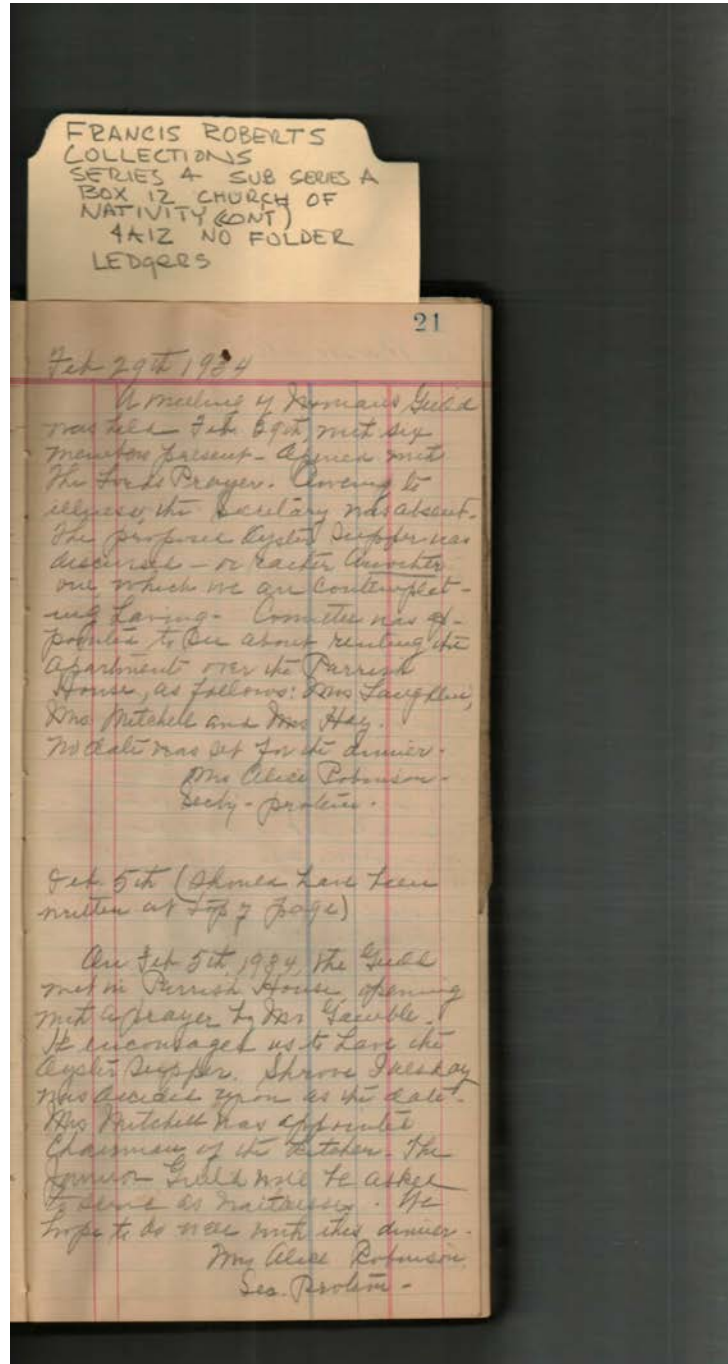 FRANCIS ROBERTS
COLLECTIONS
SERIES 4 SUB SERIES A
BOX 12 CHURCH OF
NATIVITY (CONT)
4A12 NO FOLDER
LEDgERS
21
Feb 29th 1934
A meeting of Womans Guild
was held Feb 29th, with six
members present - opened with
The Lords Prayer. Owing to
illness, the Secretary was absent.
The proposed Oyster Supper was
discussed - or rather another
one which we are contemplat-
ing having. Committee was ap-
pointed to see about renting the
apartment over the Parrish
House, as follows: Mrs Laughlin,
Mrs Mitchell and Mrs Hay.
No date was set for the dinner.
Mrs Alice Robinson -
Secty - protem.
Feb. 5th (should have been
written at top of page)
On Feb 5th, 1934, the Guild
met in Parrish House, opening
with a prayer by Mr Gamble.
It encouraged us to have the
Oyster Supper. Shrove Tuesday
was decided upon as the date.
Mrs Mitchell was appointed
Chairman of the Kitchen. The
Junior Guild will be asked
to serve as waitresses. We
hope to do well with this dinner.
Mrs Alice Robinson.
Sec. Protem -